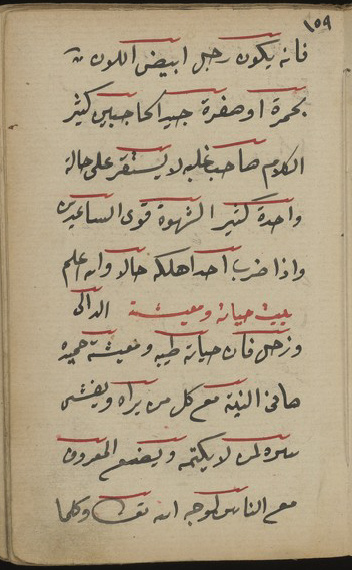 ١٥٩
فانه يكون رجل ابيض اللون
بحمرة او صفرة جيد الحاجبين كثير
الكلام صاحب غلبه لا يستقر على حالة
واحدة كثير الشهوة قوى الساعدين
واذا ضرب احدا هلكه حالا والله اعلم
بيت حياته ومعيشته الدالى
وزحل فان حياته طيبه ومعيشة حميده
صافى النية مع كل من يراه ويفشى
سره لمن لا يكتمه ويصنع المعروف
مع الناس لوجه الله وكلما